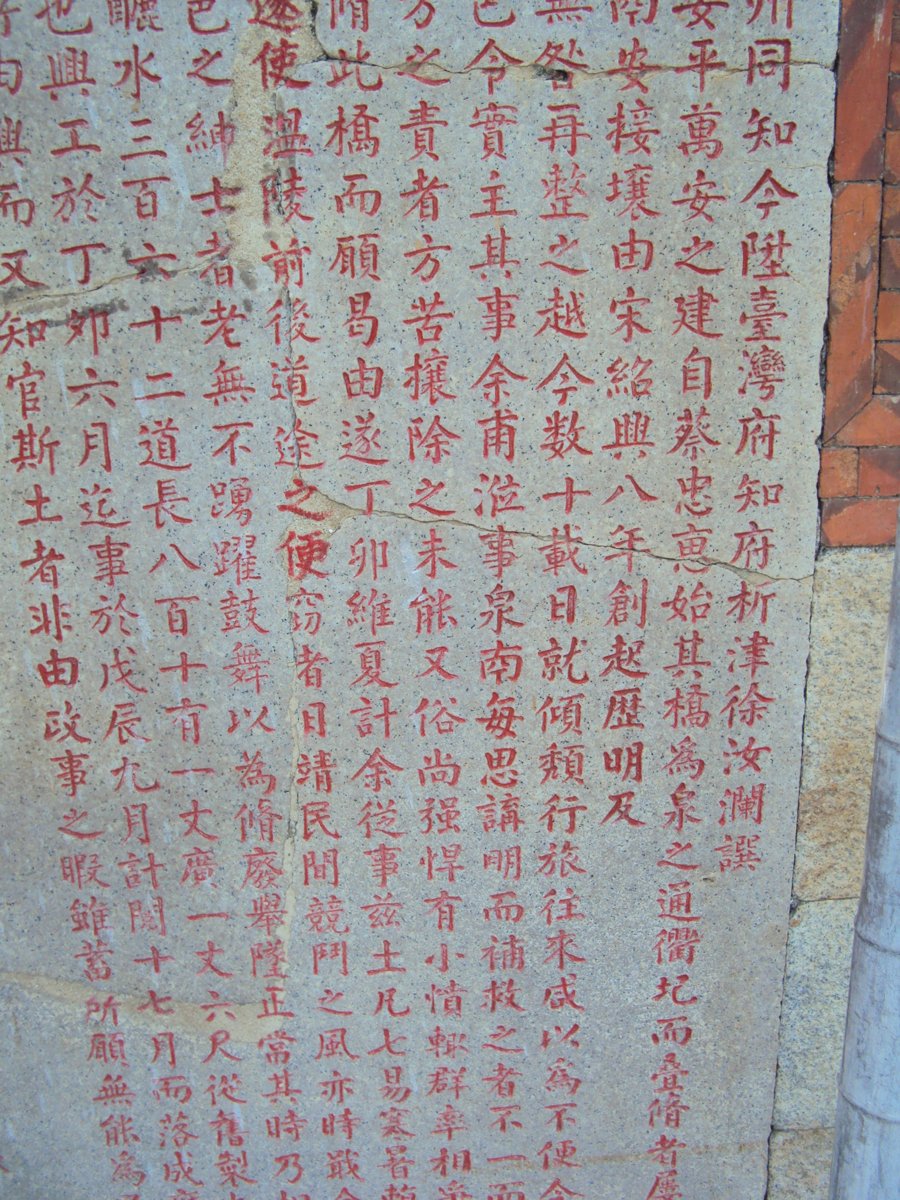 州同知今陞臺灣府知府析津徐汝瀾譔
安平萬安之建自蔡忠惠始其橋為泉之通衢圮而叠脩者屢
南安接壤由宋紹興八年創起歷明及
無咎再整之越今数十載日就傾頽行旅往來咸以為不便今
邑令實主其事余甫涖事泉南每思講明而補救之者不一而
方之責者方苦攘除之未能又俗尚强悍有小憤輙群率相
脩此橋而願曷由遂丁卯維夏計余從事兹土凡七易寒暑
遂使温陵前後道途之便窃者日靖民間競鬥之風亦時戢
邑之紳士耆老無不踴躍鼓舞以為脩廢舉墜正當其時乃
釃水三百六十二道長八百十有一丈廣一丈六尺從舊製
也興工於丁夘六月迄事於戊辰九月計閲十七月而落成
由興而又知官斯土者非由政事之暇雖蓄所願無能為